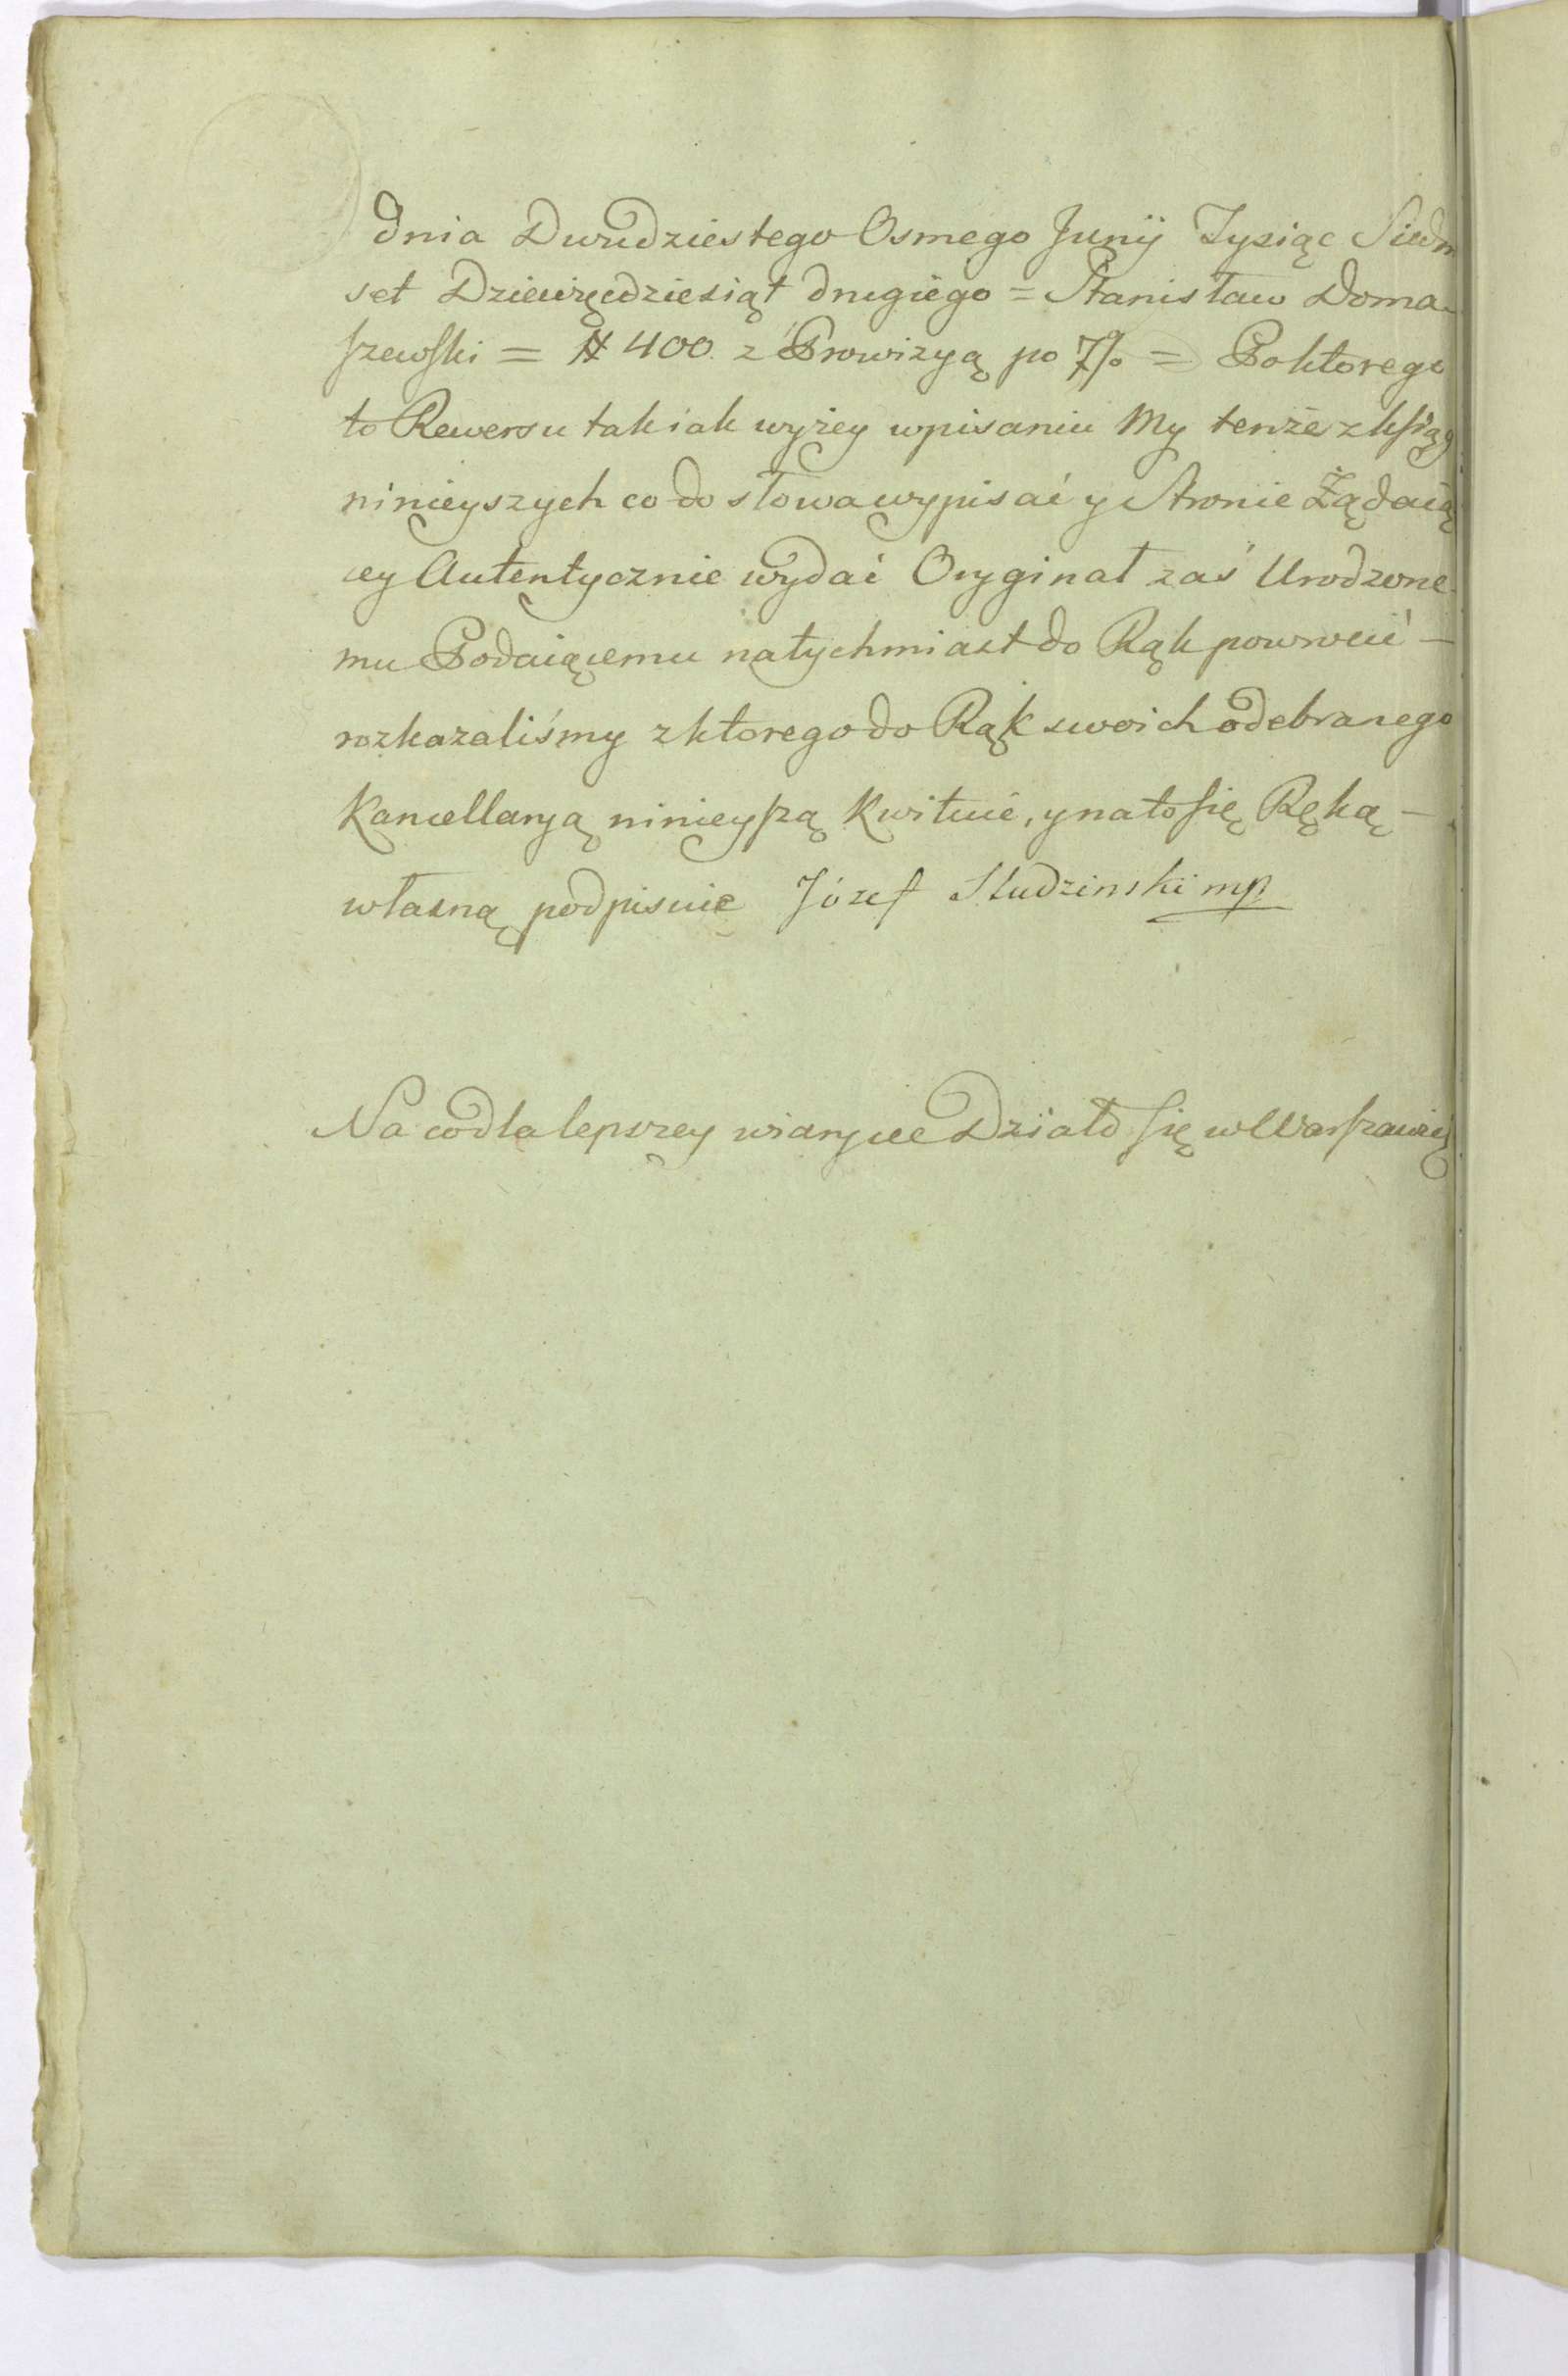 dnia Dwudziestego Osmego Junÿ Tysiąc Siedm
set Dziewięcdziesiąt drugiego = Stanisław Doma
szewski = # 400. z Prowizyą po 7% = Po ktorego
to Rewersu tak iak wyżey wpisaniu My tenże z ksiąg
ninieyszych co do słowa wypisać y Stronie Żądaią
cey Autentycznie wydać Oryginał zaś Urodzone
mu Podaiącemu natychmiast do Rąk powrocić –
rozkazaliśmy z ktorego do Rąk swoich odebranego
Kancellaryą ninieyszą Kwituie, y na to się Ręką –
własną podpisuie Józef Studzinski mp
Na co dla lepszey wiary ... Działo się w Warszawie